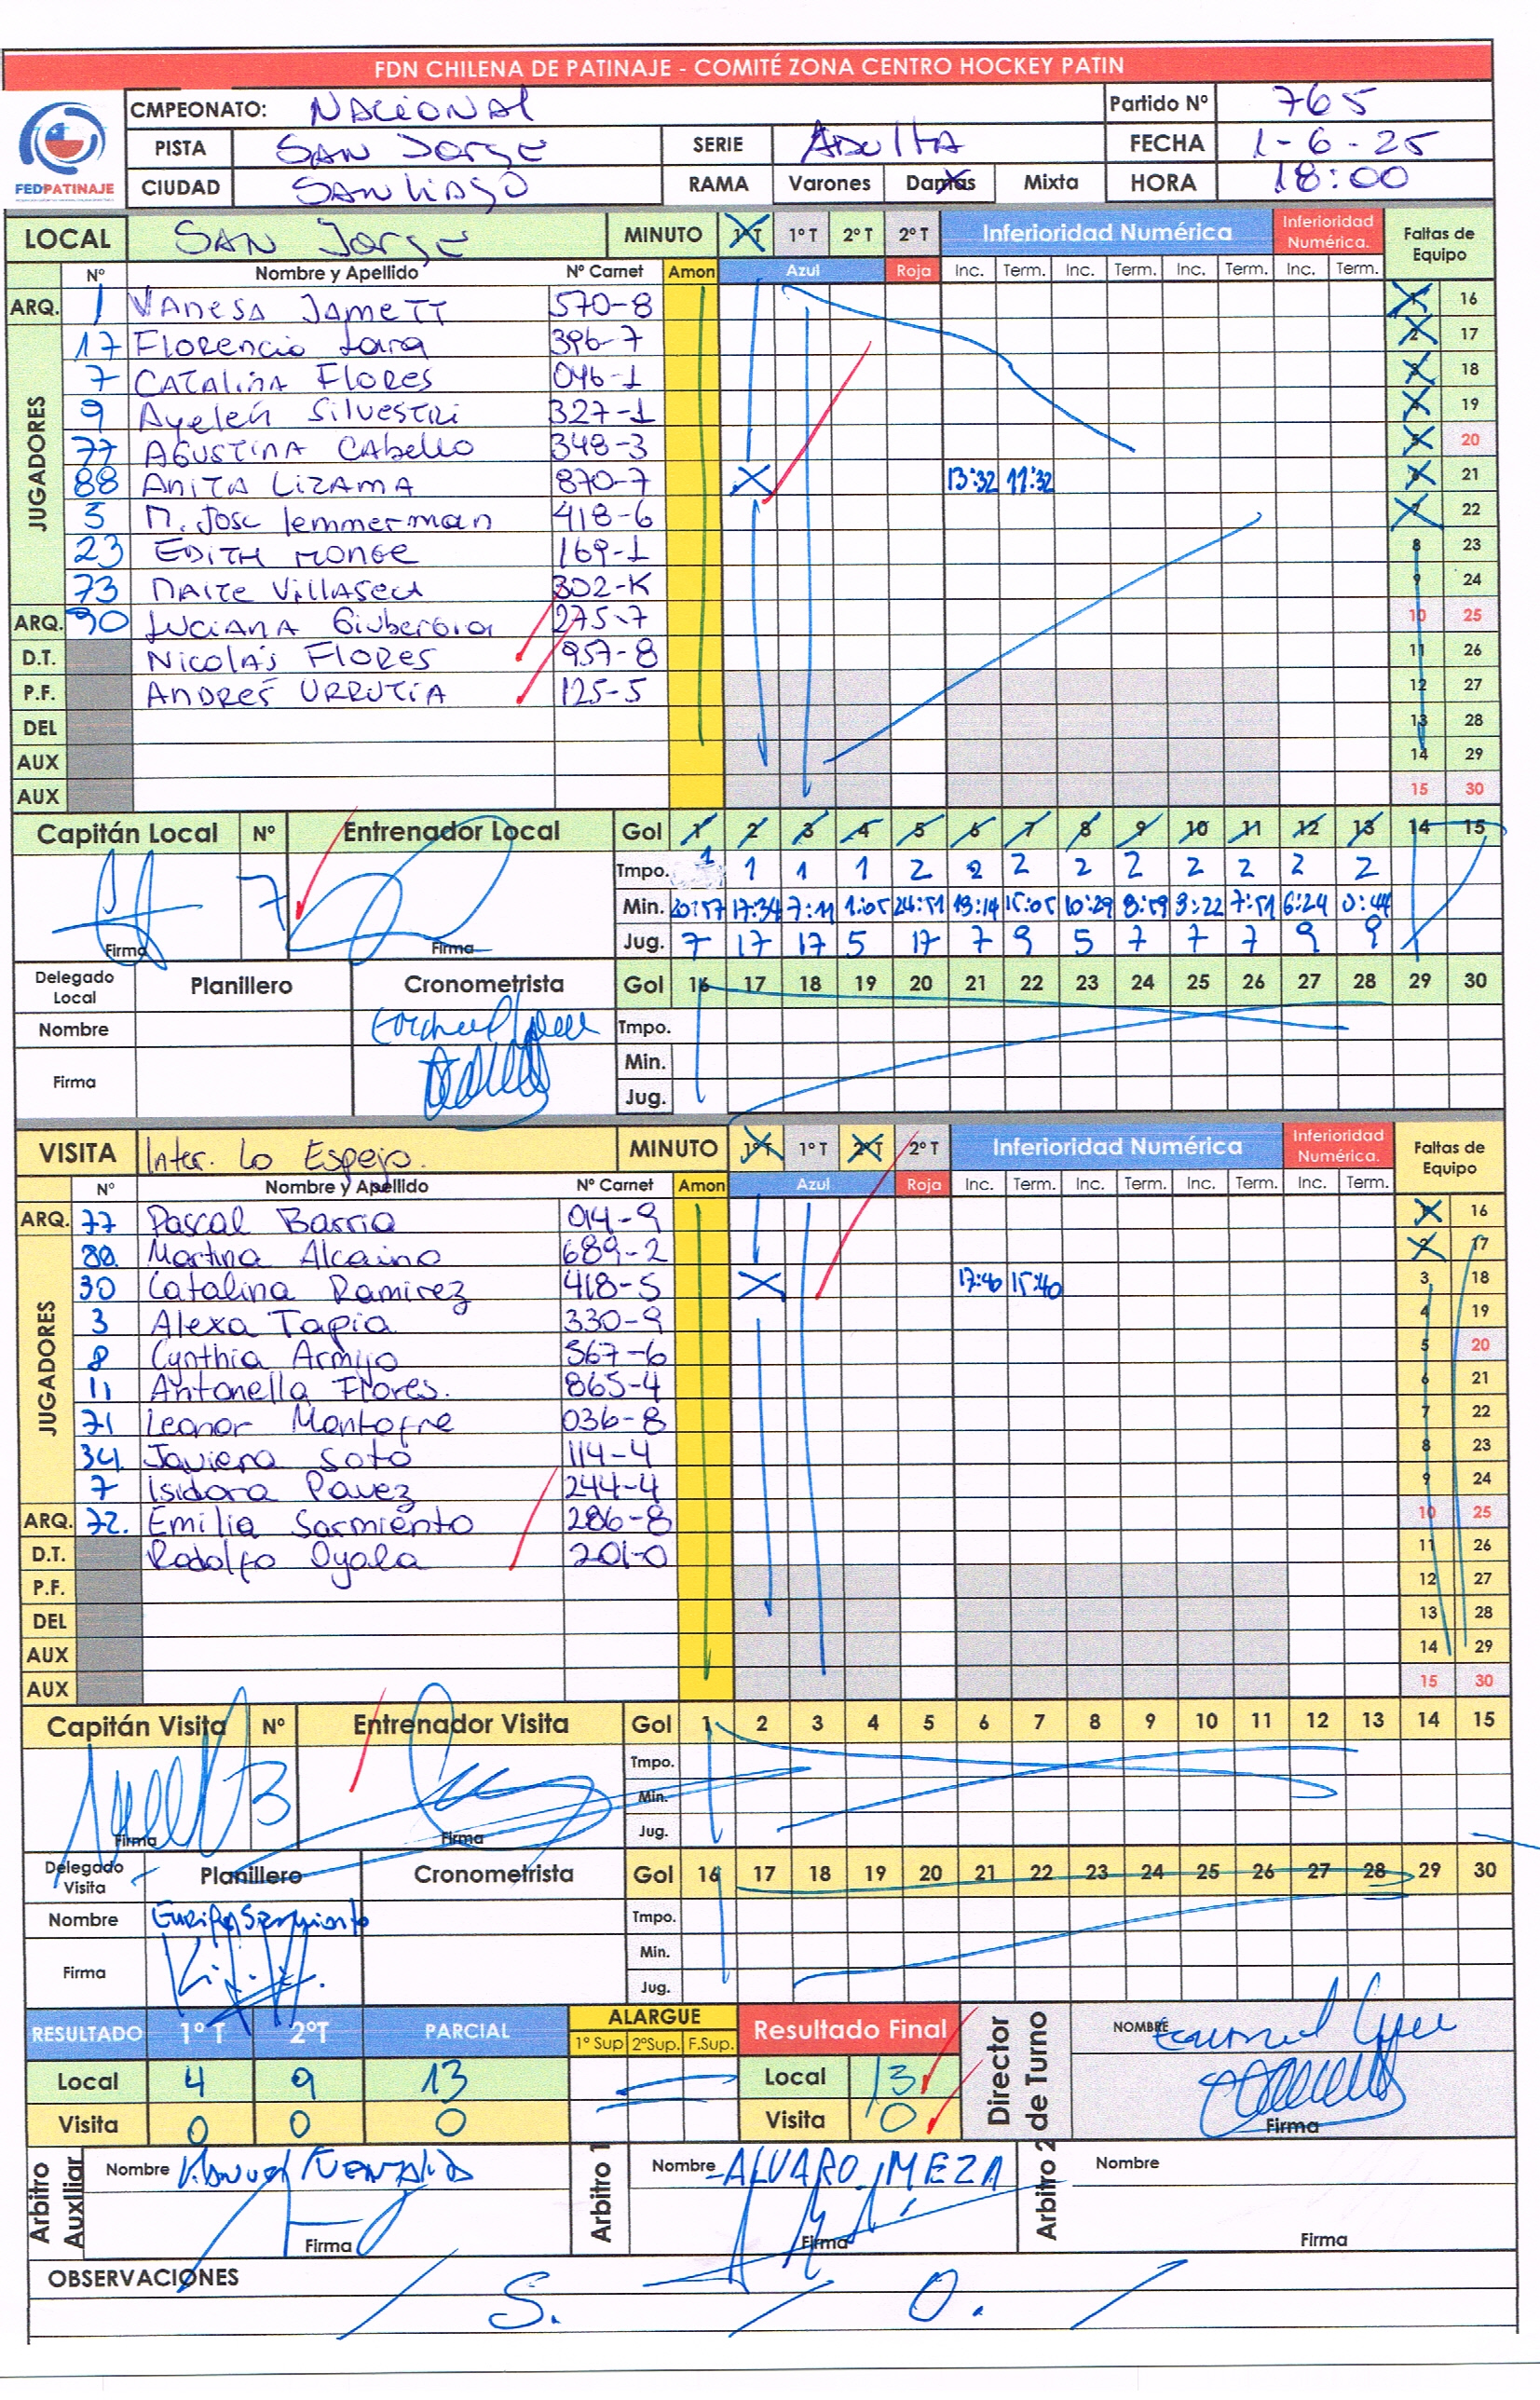 FDN CHILENA DE PATINAJE - COMITÉ ZONA CENTRO HOCKEY PATIN
FEDPATINAJE
CMPEONATO: NACIONAL Partido Nº 765
PISTA SAN JORGE SERIE ADULTA FECHA 1-6-25
CIUDAD SANTIAGO RAMA Varones Damas Mixta HORA 18:00
LOCAL SAN JORGE MINUTO 1º T 1º T 2º T 2º T Inferioridad Numérica Inferioridad Numérica. Faltas de Equipo
Nº Nombre y Apellido Nº Carnet Amon Azul Roja Inc. Term. Inc. Term. Inc. Term. Inc. Term.
JUGADORES
ARQ. 1 VANESA JAMETT 570-8 1 16
17 Florencia Lara 396-7 2 17
7 CATALINA FLORES 046-1 3 18
9 Ayelén SILVESTRI 327-1 4 19
77 AGUSTINA CABELLO 348-3 5 20
88 ANITA LIZAMA 870-7 13:32 11:32 6 21
5 M. Jose Lemmerman 418-6 7 22
23 EDITH MONGE 169-1 8 23
73 MAITE VILLASECA 302-K 9 24
ARQ. 90 LUCIANA Giubergia 275-7 10 25
D.T. NICOLÁS FLORES 957-8 11 26
P.F. ANDRES URRUTIA 125-5 12 27
DEL 13 28
AUX 14 29
AUX 15 30
Capitán Local Nº Entrenador Local Gol 1 2 3 4 5 6 7 8 9 10 11 12 13 14 15
Tmpo. 1 1 1 1 2 2 2 2 2 2 2 2 2
7 Min. 20:57 17:34 7:11 1:05 24:51 19:14 15:05 10:29 8:59 8:22 7:51 6:24 0:44
Firma Firma Jug. 7 17 17 5 17 7 9 5 7 7 7 9 9
Delegado Local Planillero Cronometrista Gol 16 17 18 19 20 21 22 23 24 25 26 27 28 29 30
Nombre Tmpo.
Min.
Firma Jug.
VISITA Inter. Lo Espejo. MINUTO 1º T 1º T 2º T 2º T Inferioridad Numérica Inferioridad Numérica. Faltas de Equipo
Nº Nombre y Apellido Nº Carnet Amon Azul Roja Inc. Term. Inc. Term. Inc. Term. Inc. Term.
JUGADORES
ARQ. 77 Pascal Barria 014-9 1 16
80. Martina Alcaino 689-2 2 17
30 Catalina Ramirez 418-5 17:40 15:40 3 18
3 Alexa Tapia 330-9 4 19
8 Cynthia Armijo 567-6 5 20
11 Antonella Flores. 865-4 6 21
71 Leonor Montofre 036-8 7 22
34. Javiera Soto 114-4 8 23
7 Isidora Pavez 244-4 9 24
ARQ. 72. Emilia Sarmiento 286-8 10 25
D.T. Rodolfo Oyala 201-0 11 26
P.F. 12 27
DEL 13 28
AUX 14 29
AUX 15 30
Capitán Visita Nº Entrenador Visita Gol 1 2 3 4 5 6 7 8 9 10 11 12 13 14 15
Tmpo.
3 Min.
Firma Firma Jug.
Delegado Visita Planillero Cronometrista Gol 16 17 18 19 20 21 22 23 24 25 26 27 28 29 30
Nombre Tmpo.
Min.
Firma Jug.
RESULTADO 1º T 2ºT PARCIAL ALARGUE 1º Sup 2ºSup. F.Sup. Resultado Final Director de Turno NOMBRE
Local 4 9 13 Local 13
Visita 0 0 0 Visita 0 Firma
Arbitro Auxiliar Nombre Arbitro 1 Nombre ALVARO MEZA Arbitro 2 Nombre
Firma Firma Firma
OBSERVACIONES
S. / O.